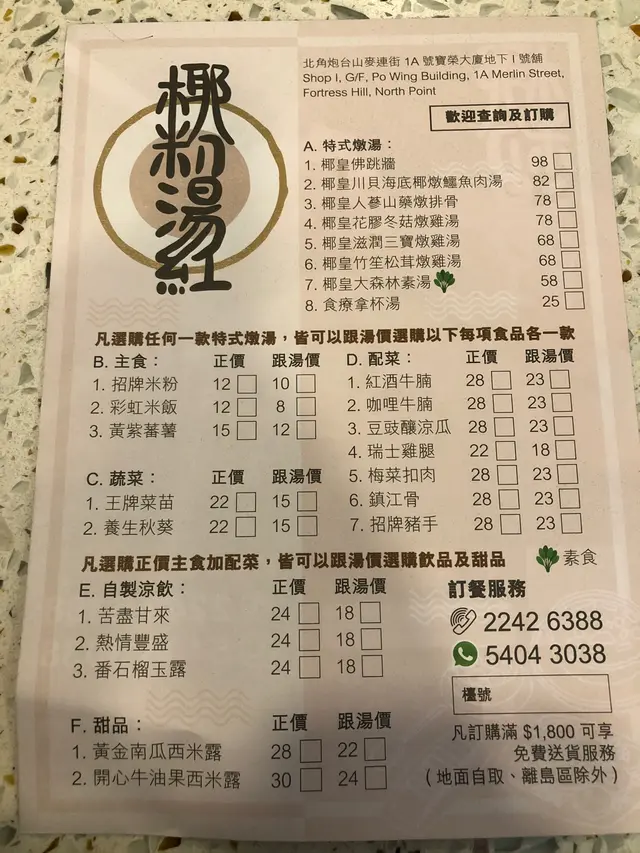 椰粉湯紅
北角炮台山麥連街 1A 號寶榮大廈地下 I 號舖
Shop I, G/F, Po Wing Building, 1A Merlin Street,
Fortress Hill, North Point
歡迎查詢及訂購
A. 特式燉湯：
1. 椰皇佛跳牆 98
2. 椰皇川貝海底椰燉鱷魚肉湯 82
3. 椰皇人蔘山藥燉排骨 78
4. 椰皇花膠冬菇燉雞湯 78
5. 椰皇滋潤三寶燉雞湯 68
6. 椰皇竹笙松茸燉雞湯 68
7. 椰皇大森林素湯 58
8. 食療拿杯湯 25
凡選購任何一款特式燉湯，皆可以跟湯價選購以下每項食品各一款
B. 主食： 正價 跟湯價
1. 招牌米粉 12 10
2. 彩虹米飯 12 8
3. 黃紫蕃薯 15 12
C. 蔬菜： 正價 跟湯價
1. 王牌菜苗 22 15
2. 養生秋葵 22 15
D. 配菜： 正價 跟湯價
1. 紅酒牛腩 28 23
2. 咖哩牛腩 28 23
3. 豆豉釀涼瓜 28 23
4. 瑞士雞腿 22 18
5. 梅菜扣肉 28 23
6. 鎮江骨 28 23
7. 招牌豬手 28 23
凡選購正價主食加配菜，皆可以跟湯價選購飲品及甜品
素食
E. 自製涼飲： 正價 跟湯價
1. 苦盡甘來 24 18
2. 熱情豐盛 24 18
3. 番石榴玉露 24 18
F. 甜品： 正價 跟湯價
1. 黃金南瓜西米露 28 22
2. 開心牛油果西米露 30 24
訂餐服務
2242 6388
5404 3038
檯號
凡訂購滿 $1,800 可享
免費送貨服務
（地面自取、離島區除外）